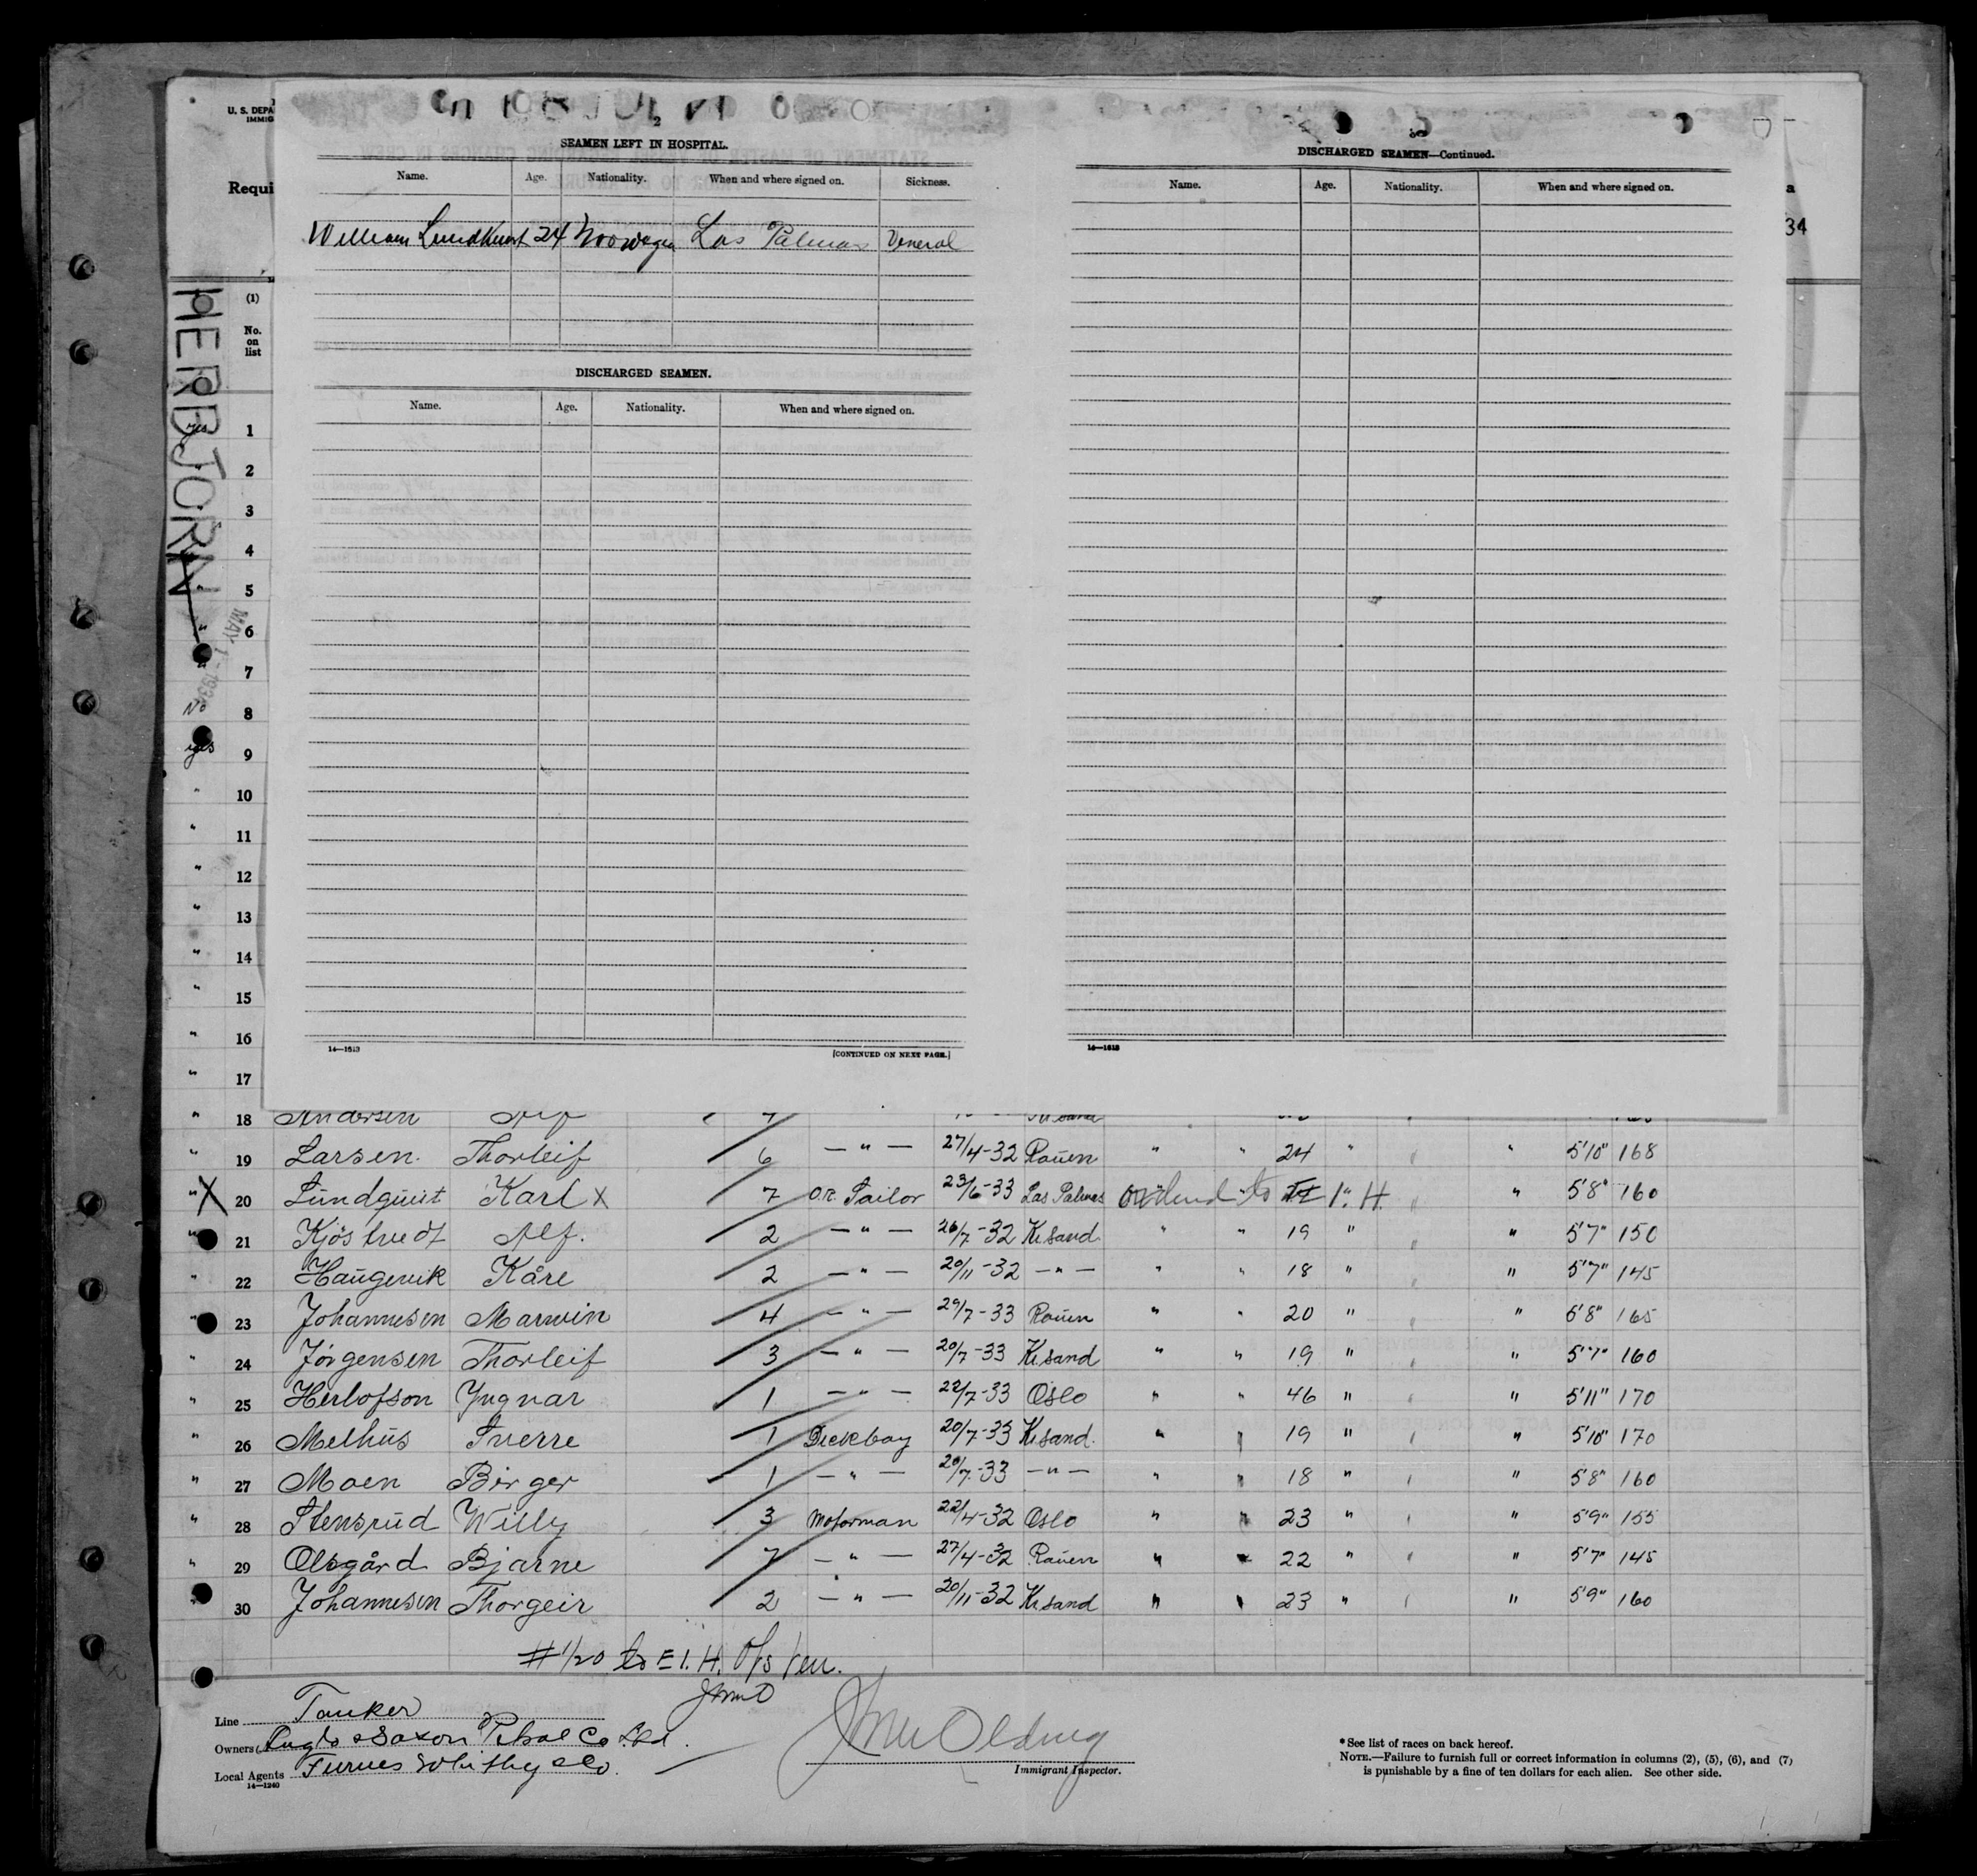 U. S. DEPA
IMMIG
Requi
HERBJORN
MAY 1 - 1934
2
SEAMEN LEFT IN HOSPITAL.
Name. Age. Nationality. When and where signed on. Sickness.
William 24 Las Palmas Veneral
DISCHARGED SEAMEN.
Name. Age. Nationality. When and where signed on.
14—1513 [CONTINUED ON NEXT PAGE.]
DISCHARGED SEAMEN—Continued.
Name. Age. Nationality. When and where signed on.
14—1513
a
34
(1)
No.
on
list
yes 1
" 2
3
4
" 5
" 6
" 7
No 8
yes 9
" 10
" 11
" 12
" 13
" 14
" 15
" 16
" 17
" 18 Andersen Alf 7 Kr.sand
" 19 Larsen Thorleif 6 — " — 27/4-32 Rouen " " 24 " " 5'10" 168
" X 20 Lundquist Karl X 7 Sailor 23/6-33 Las Palmas to 1. H. " 5'8" 160
" 21 Kjöstvedt Alf. 2 — " — 26/7-32 Kr.sand " " 19 " " 5'7" 150
" 22 Haugevik Kåre 2 — " — 20/11-32 — " — " " 18 " " 5'7" 145
" 23 Johannesen Marwin 4 — " — 29/7-33 Rouen " " 20 " " 5'8" 165
" 24 Jörgensen Thorleif 3 — " — 20/7-33 Kr.sand " " 19 " " 5'7" 160
" 25 Herlofson Yngvar 1 — " — 22/7-33 Oslo " " 46 " " 5'11" 170
" 26 Melhus Sverre 1 Deckboy 20/7-33 Kr.sand. " " 19 " " 5'10" 170
" 27 Moen Birger 1 — " — 20/7-33 — " — " " 18 " " 5'8" 160
" 28 Stensrud Willy 3 Motorman 22/4-32 Oslo " " 23 " " 5'9" 155
" 29 Olsgård Bjarne 7 — " — 27/4-32 Rouen " " 22 " " 5'7" 145
" 30 Johannesen Thorgeir 2 — " — 20/11-32 Kr.sand " " 23 " " 5'9" 160
# 1/20 to E I. H.
Line Tanker
Owners Anglo Saxon Petrol Co Ltd.
Local Agents Furnes Whithy & Co.
14—1240
Immigrant Inspector.
* See list of races on back hereof.
NOTE.—Failure to furnish full or correct information in columns (2), (5), (6), and (7)
is punishable by a fine of ten dollars for each alien. See other side.